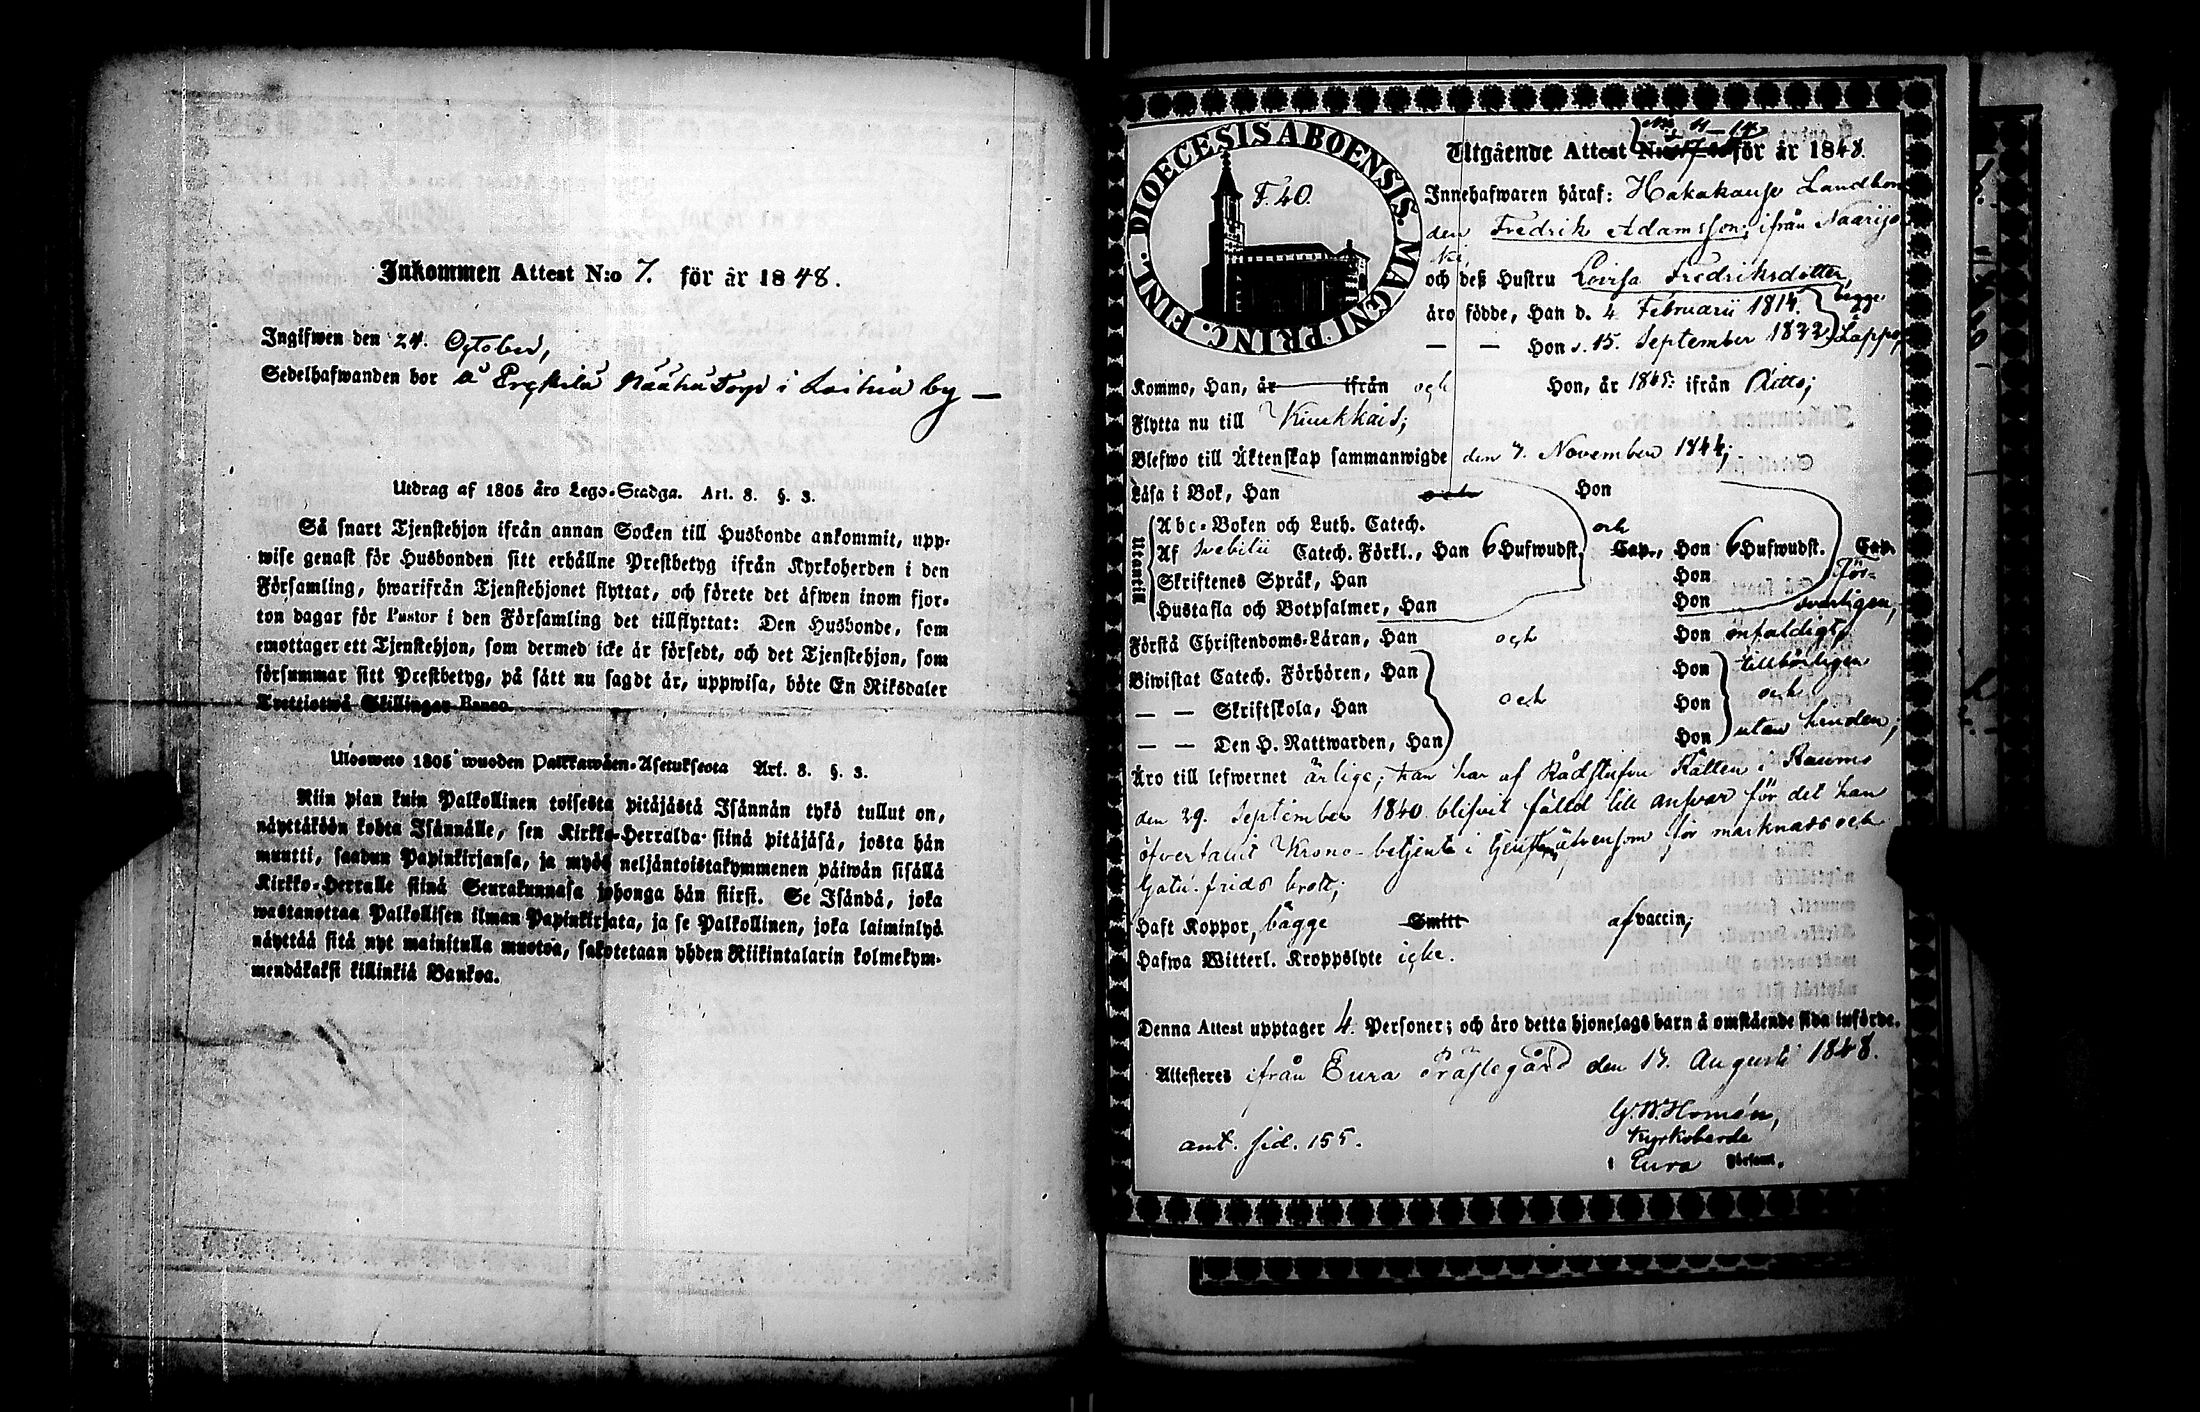 Inkommen Attest N:o 7. för år 1848.
Ingifwen den 24. October,
Sedelhafwanden bor å Torp i by —
Utdrag af 1805 åro Lego-Stadga. Art. 8. §. 3.
Så snart Tjenstehjon ifrån annan Socken till Husbonde ankommit, upp-
wise genast för Husbonden sitt erhållne Prestbetyg ifrån Kyrkoherden i den
Församling, hwarifrån Tjenstehjonet flyttat, och förete det äfwen inom fjor-
ton dagar för Pastor i den Församling det tillflyttat: Den Husbonde, som
emottager ett Tjenstehjon, som dermed icke är försedt, och det Tjenstehjon, som
försummar sitt Prestbetyg, på sätt nu sagdt är, uppwisa, böte En Riksdaler
Trettiotwå Skillingar Banco.
Ulosweto 1805 wuoden Palkkawäen-Asetuksesta Art. 8. §. 3.
Niin pian kuin Palkollinen toisesta pitäjästä Isännän tykö tullut on,
näyttäköön kohta Isännälle, sen Kirkko-Herralda siinä pitäjäsä, josta hän
muutti, saadun Papinkirjansa, ja myös neljäntoistakymmenen päiwän sisällä
Kirkko-Herralle siinä Seurakunnasa johonga hän siirsi. Se Isändä, joka
wastanottaa Palkollisen ilman Papinkirjata, ja se Palkollinen, joka laiminlyö
näyttää sitä nyt mainitulla muotoa, sakotetaan yhden Riikintalarin kolmekym-
mendäkaksi killinkiä Bankoa.
DIOECESIS ABOENSIS. MAGNI PRINC. FINL.
F. 40.
11-14
Utgående Attest N:o för år 1848.
Innehafwaren häraf: Landbon
den Fredrik Adamsson, ifrån Naarijo
ki,
och deß Hustru Lovisa Fredriksdotter,
äro födde, Han d. 4 Februarii 1814. begge
— — Hon d. 15. September 1822 i Lappo,
Kommo, Han, år ifrån och Hon, år 1845: ifrån Kitto;
Flytta nu till Kiukkais;
Blefwo till Äktenskap sammanwigde den 7. November 1844;
Läsa i Bok, Han och Hon
Utantill
Abc-Boken och Luth. Catech. och
Af Svebilii Catech. Förkl., Han 6 Hufwudst. Cap., Hon 6 Hufwudst. Cap.
Skriftenes Språk, Han Hon för-
Hustafla och Botpsalmer, Han Hon svarligen;
Förstå Christendoms-Läran, Han och Hon enfaldigt;
Biwistat Catech. Förhören, Han Hon tillbörligen
— — Skriftskola, Han och Hon och
— — Den H. Nattwarden, Han Hon utan hinder;
Äro till lefwernet ärlige; han har af Rådstufvu Rätten i Raumo
den 29. September 1840 blifvit fälld till ansvar för det han
öfverfallit Krono-betjente i som för marknads och
Gatu-frids brott;
Haft Koppor, bägge Smitt af vaccin;
Hafwa Witterl. Kroppslyte icke.
Denna Attest upptager 4. Personer; och äro detta hjonelags barn å omstående sida införde.
Attesteres ifrån Eura Prästegård den 17. Augusti 1848.
G. W. Homén,
Kyrkoherde
i Eura Församl.
ant. sid. 155.